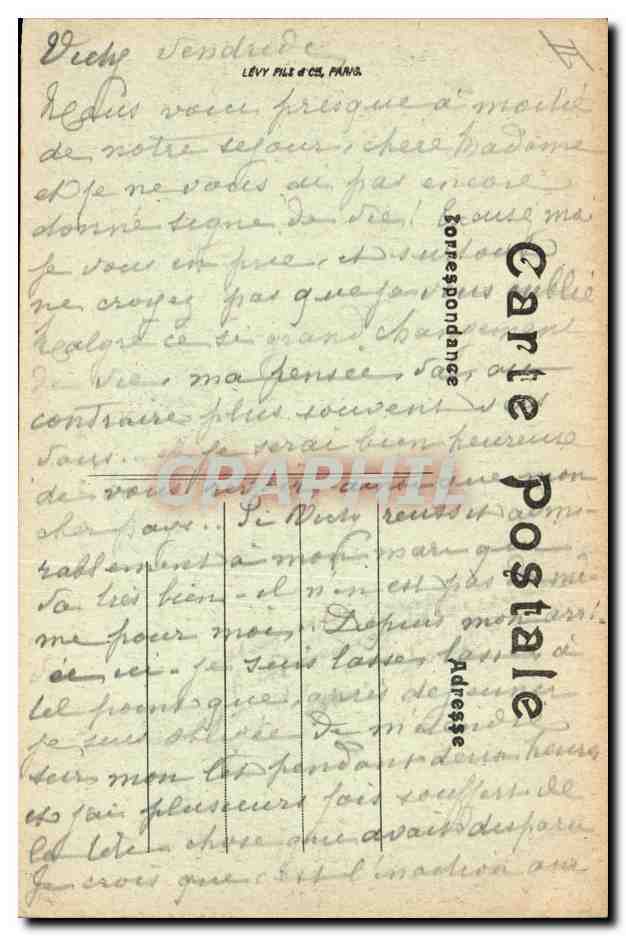 Vichy Vendredi
II
LÉVY FILS & Cie, PARIS.
Nous voici presque à moitié
de notre séjour, chère Madame
et je ne vous ai pas encore
donné signe de vie! Excusez moi
je vous en prie, et surtout
ne croyez pas que je vous oublie
Malgré ce si grand changement
de vie, ma pensée va, au
contraire plus souvent vers
vous. Je serai bien heureuse
de vous ainsi que mon
cher pays.. Si Vichy réussit admi-
rablement à mon mari qui
va très bien - il n'en est pas de mê-
me pour moi. Depuis mon arri-
vée ici - je suis lasse, lasse à
tel point que, après déjeuner
je suis obligée de m'étendre
sur mon lit pendant deux heures
et j'ai plusieurs fois souffert de
la tête - chose qui avait disparu
Je crois que c'est l'inaction aux
Carte Postale
Correspondance
Adresse
CPAPHIL